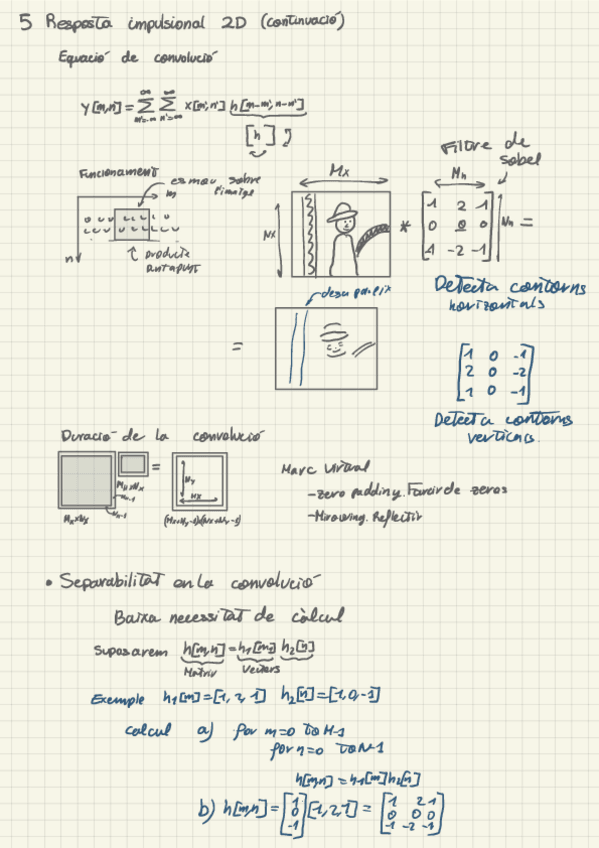 5 Resposta impulsional 2D (continuació)
Equació de convolució
y[m,n] = ∑ ∑ x[m',n'] h[m-m', n-n']
m'=-∞ n'=-∞
∞ ∞
[h]
Filtre de
sobel
Funcionament
es mou sobre
l'imatge
m
n
producte
punt a punt
Mx
Nx
*
Mh
1 2 1
0 0 0
1 -2 -1
Nh =
Detecta contorns
horizontals
desapareix
=
1 0 -1
2 0 -2
1 0 -1
Detecta contorns
verticals
Duració de la convolució
=
Mx×Nx
Marc virtual
-zero padding. Farcir de zeros
-Mirroring. Reflectir
• Separabilitat en la convolució
Baixa necessitat de càlcul
Suposarem h[m,n] = h1[m] h2[n]
Matriu Vectors
Exemple h1[m]=[1, 2, 1] h2[n]=[1,0,-1]
calcul a) for m=0 to M-1
for n=0 to N-1
h[m,n] = h1[m]h2[n]
b) h[m,n] = [1 0 -1] [1,2,1] = [1 2 1
0 0 0
-1 -2 -1]